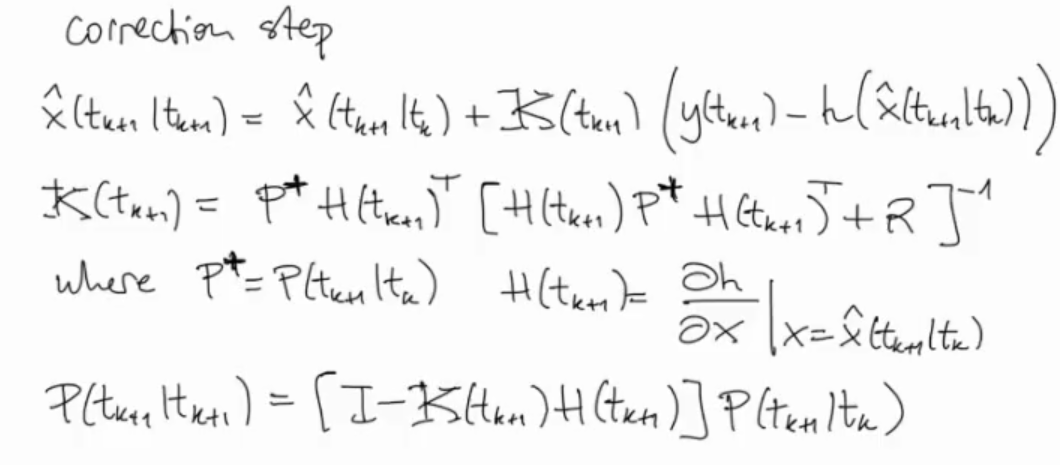 correction step
x̂(t_{k+1}|t_{k+1}) = x̂(t_{k+1}|t_k) + K(t_{k+1}) (y(t_{k+1}) - h(x̂(t_{k+1}|t_k)))
K(t_{k+1}) = P* H(t_{k+1})^T [H(t_{k+1}) P* H(t_{k+1})^T + R]^{-1}
where P* = P(t_{k+1}|t_k) H(t_{k+1}) = ∂h/∂x |_{x=x̂(t_{k+1}|t_k)}
P(t_{k+1}|t_{k+1}) = [I - K(t_{k+1}) H(t_{k+1})] P(t_{k+1}|t_k)